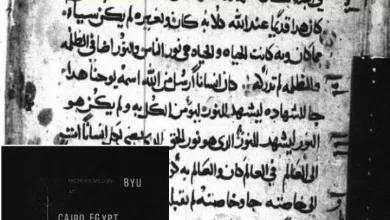 كان هدا قديمًا عند الله كلا به كان وبغيره لم يكن سياء
مما كان وبه كانت الحياه والحياه هي نور الناس والنور اضا في الظلمه
والظلمه لم تدركه كان انسانًا ارسل من الله اسمه يوحنا هدا
جا للشهاده ليشهد للنور ليومن الكل به ولم يكن هو
النور ليشهد للنور الدى هو نور الحق لكل انسانًا اتي
الى العالم في العالم كان والعالم به
الى خاصته جا وخاصته لم
BYU
AT
CAIRO EGYPT